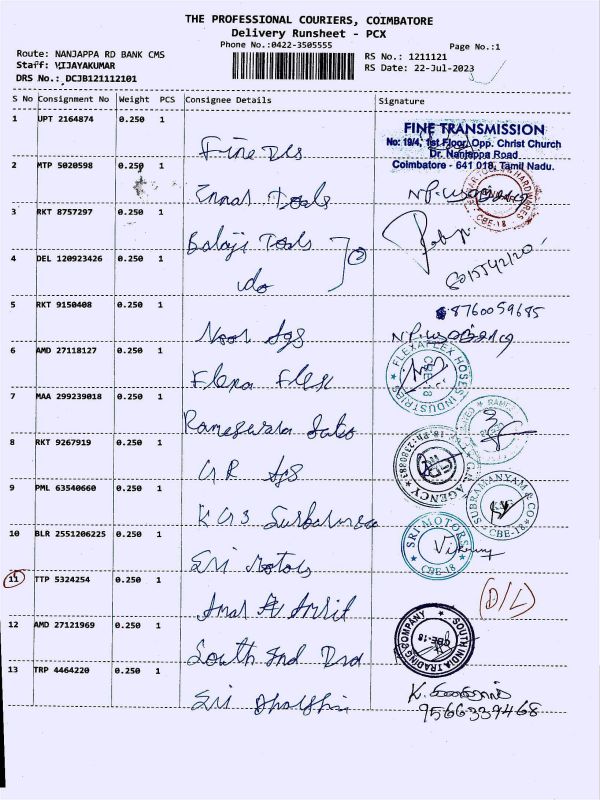 THE PROFESSIONAL COURIERS, COIMBATORE
Delivery Runsheet - PCX
Phone No.:0422-3505555
Page No.:1
Route: NANJAPPA RD BANK CMS
Staff: VIJAYAKUMAR
DRS No.: DCJB121112101
RS No.: 1211121
RS Date: 22-Jul-2023
S No Consignment No Weight PCS Consignee Details Signature
1 UPT 2164874 0.250 1
FINE TRANSMISSION
No: 19/4, 1st Floor, Opp. Christ Church
Dr. Nanjappa Road
Coimbatore - 641 018, Tamil Nadu.
2 MTP 5020598 0.250 1 Tools
CBE-18
3 RKT 8757297 0.250 1 Balaji Tools
4 DEL 120923426 0.250 1 do
2
5 RKT 9150408 0.250 1 Noor Ags
8760059685
6 AMD 27118127 0.250 1 Flexa Flex
FLEXAFLEX HOSES INDUSTRIES
CBE-18
7 MAA 299239018 0.250 1
8 RKT 9267919 0.250 1 G R Ags
G.R. AGENCY
9 PML 63540660 0.250 1 K G S
SUBRAMANYAM & CO
CBE-18
10 BLR 2551206225 0.250 1 Sri Motors
SRI MOTORS
CBE-18
11 TTP 5324254 0.250 1 Amrit
(D/L)
12 AMD 27121969 0.250 1 South Ind Trd
SOUTH INDIA TRADING COMPANY
CBE-18
13 TRP 4464220 0.250 1 Sri
9566339468